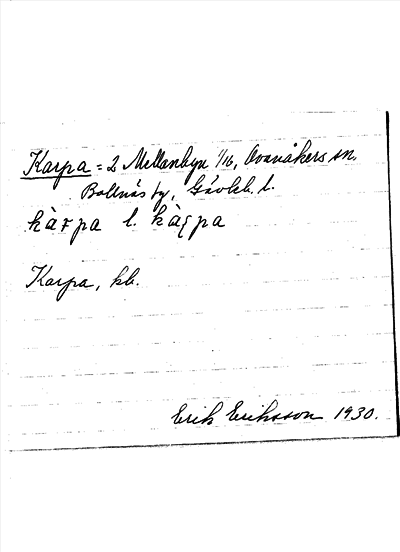 Karpa = 2 Mellanbyn 1/16, Ovanåkers sn.
Bollnäs tg, Gävleb. l.
kàrpa l. kàrpa
Karpa, kb.
Erik Eriksson 1930.